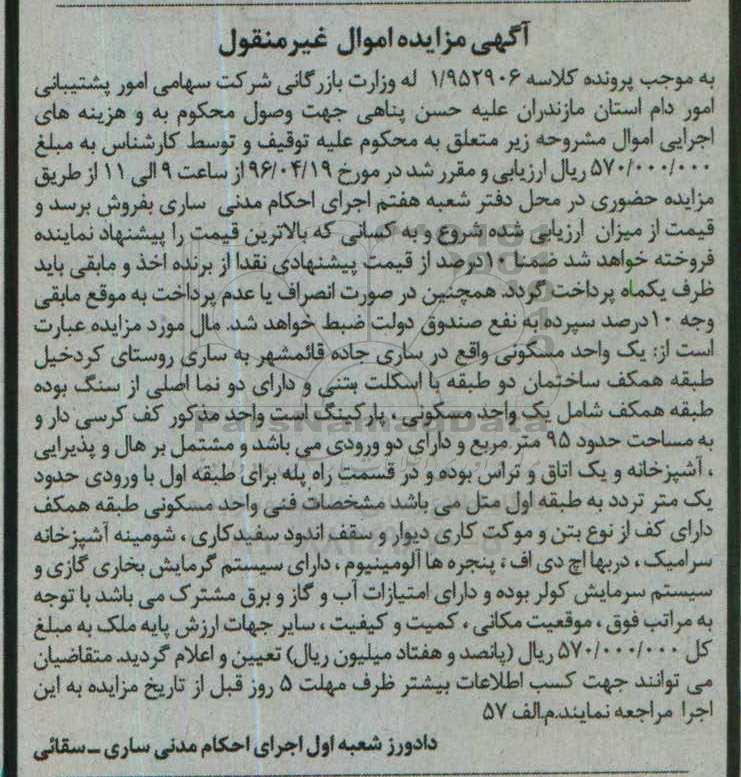 آگهی مزایده اموال غیرمنقول
به موجب پرونده کلاسه ۱/۹۵۲۹۰۶ له وزارت بازرگانی شرکت سهامی امور پشتیبانی
امور دام استان مازندران علیه حسن پناهی جهت وصول محکوم به و هزینه های
اجرایی اموال مشروحه زیر متعلق به محکوم علیه توقیف و توسط کارشناس به مبلغ
۵۷۰/۰۰۰/۰۰۰ ریال ارزیابی و مقرر شد در مورخ ۹۶/۰۴/۱۹ از ساعت ۹ الی ۱۱ از طریق
مزایده حضوری در محل دفتر شعبه هفتم اجرای احکام مدنی ساری بفروش برسد و
قیمت از میزان ارزیابی شده شروع و به کسانی که بالاترین قیمت را پیشنهاد نماینده
فروخته خواهد شد ضمنا ۱۰درصد از قیمت پیشنهادی نقدا از برنده اخذ و مابقی باید
ظرف یکماه پرداخت گردد. همچنین در صورت انصراف یا عدم پرداخت به موقع مابقی
وجه ۱۰درصد سپرده به نفع صندوق دولت ضبط خواهد شد. مال مورد مزایده عبارت
است از: یک واحد مسکونی واقع در ساری جاده قائمشهر به ساری روستای کردخیل
طبقه همکف ساختمان دو طبقه با اسکلت بتنی و دارای دو نما اصلی از سنگ بوده
طبقه همکف شامل یک واحد مسکونی ، پارکینگ است واحد مذکور کف کرسی دار و
به مساحت حدود ۹۵ متر مربع و دارای دو ورودی می باشد و مشتمل بر هال و پذیرایی
، آشپزخانه و یک اتاق و تراس بوده و در قسمت راه پله برای طبقه اول با ورودی حدود
یک متر تردد به طبقه اول متل می باشد مشخصات فنی واحد مسکونی طبقه همکف
دارای کف از نوع بتن و موکت کاری دیوار و سقف اندود سفیدکاری ، شومینه آشپزخانه
سرامیک ، دربها اچ دی اف ، پنجره ها آلومینیوم ، دارای سیستم گرمایش بخاری گازی و
سیستم سرمایش کولر بوده و دارای امتیازات آب و گاز و برق مشترک می باشد با توجه
به مراتب فوق ، موقعیت مکانی ، کمیت و کیفیت ، سایر جهات ارزش پایه ملک به مبلغ
کل ۵۷۰/۰۰۰/۰۰۰ ریال (پانصد و هفتاد میلیون ریال) تعیین و اعلام گردید. متقاضیان
می توانند جهت کسب اطلاعات بیشتر ظرف مهلت ۵ روز قبل از تاریخ مزایده به این
اجرا مراجعه نمایند.م.الف ۵۷
دادورز شعبه اول اجرای احکام مدنی ساری ـ سقائی
ParsNamadData